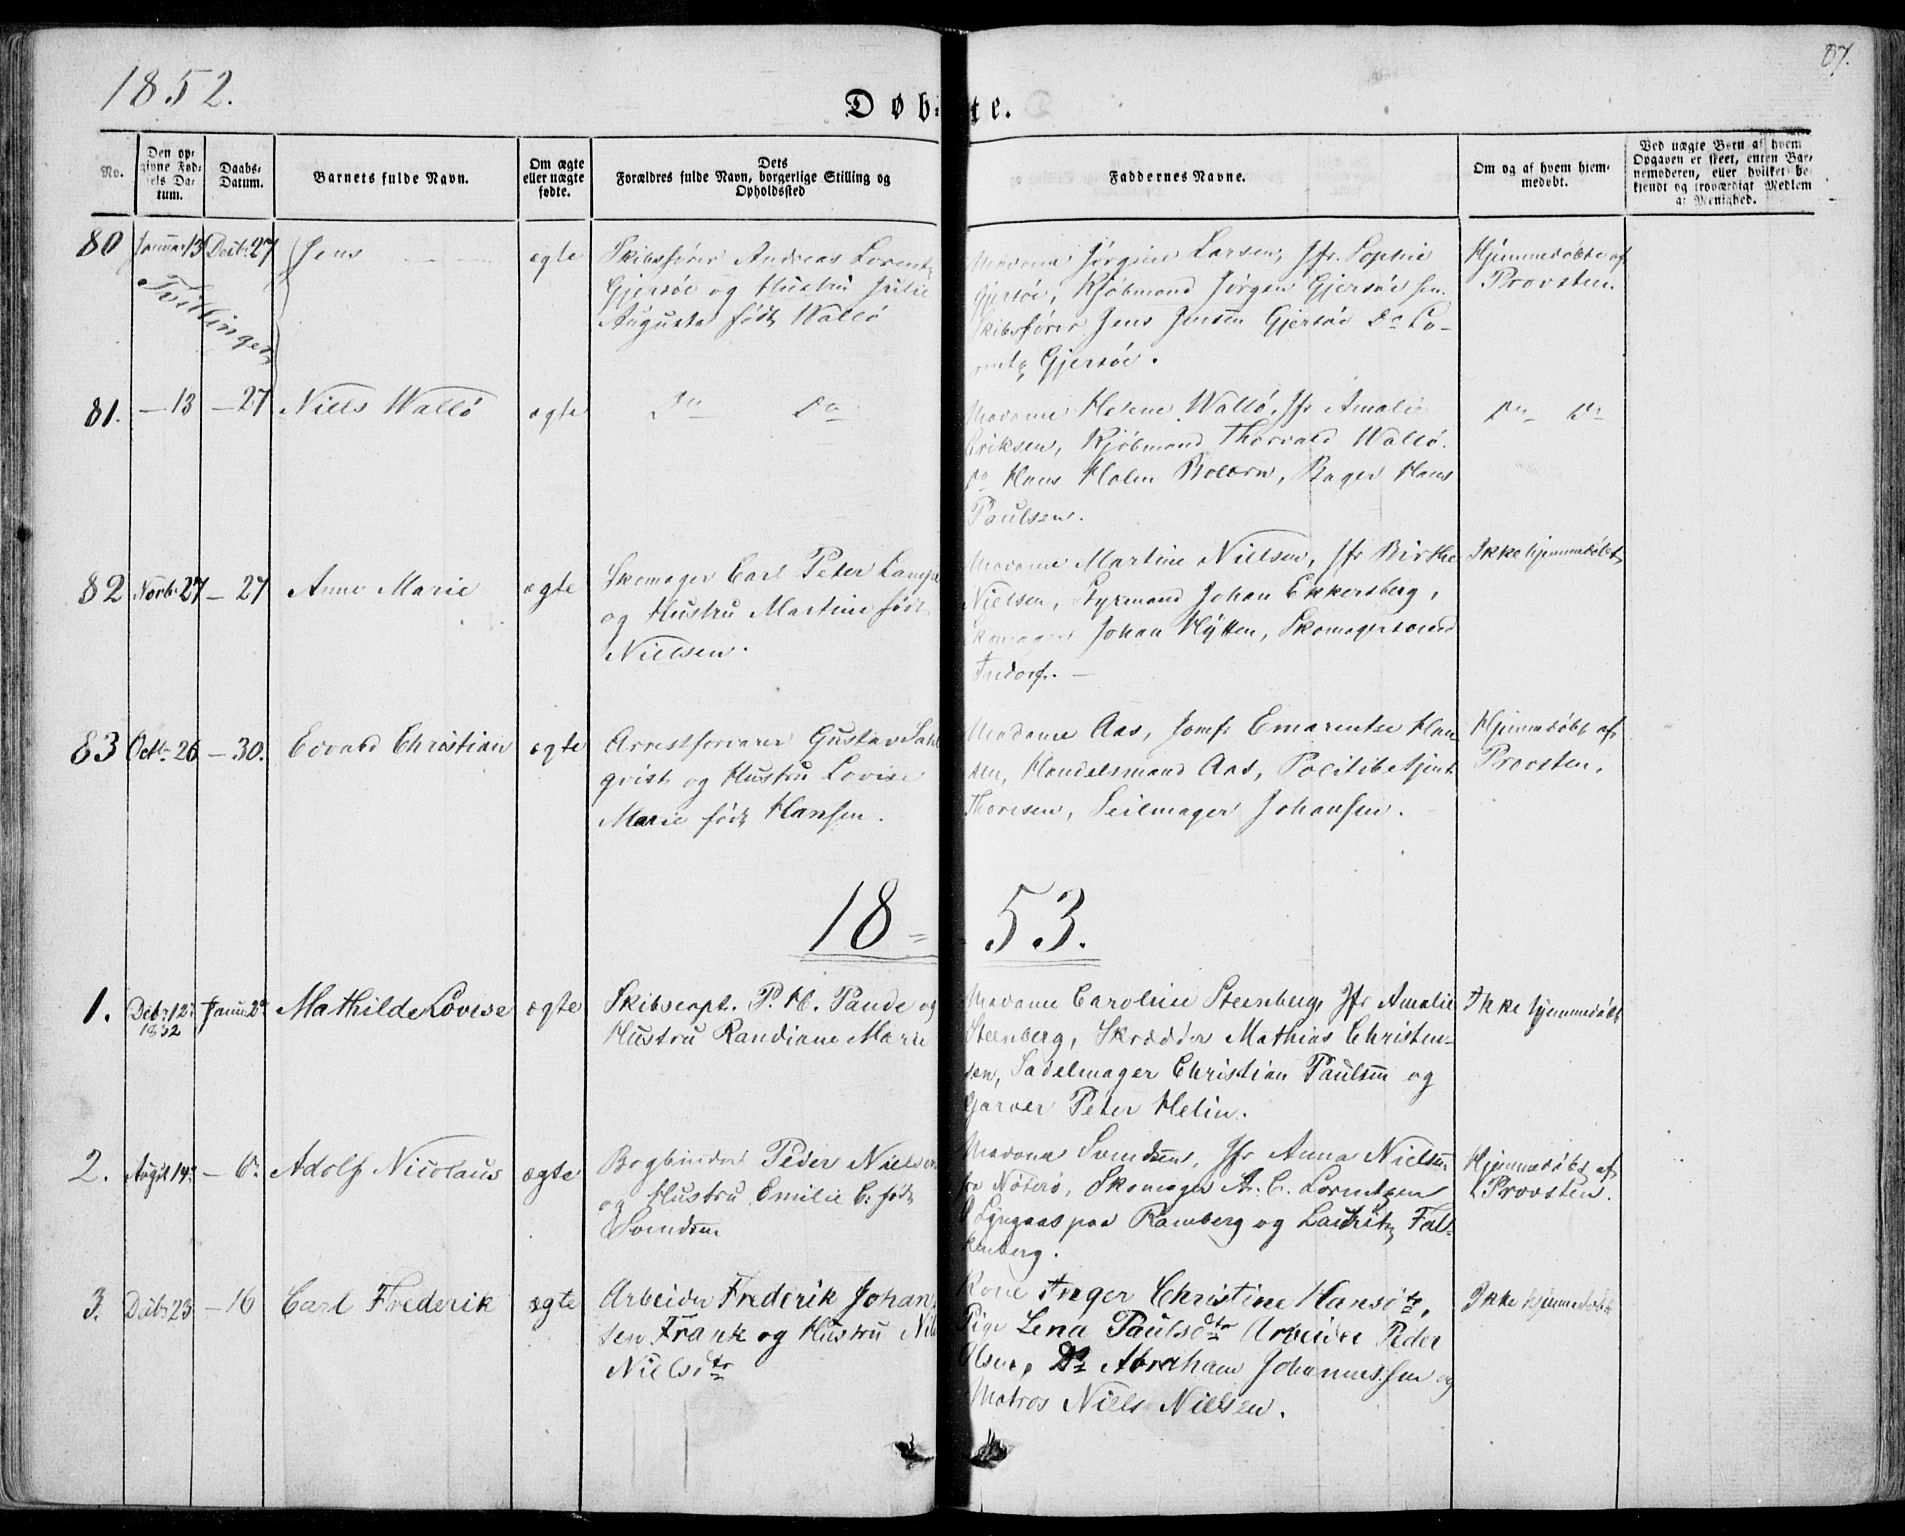 1852.
87.
Døbte.
No.
Den op-
givne Fød-
sels Da-
tum.
Daabs-
Datum.
Barnets fulde Navn.
Om ægte
eller uægte
fødte.
Dets
Forældres fulde Navn, borgerlige Stilling og
Opholdssted
Faddernes Navne.
Om og af hvem hjem-
medøbt.
Ved uægte Børn af hvem
Opgaven er skeet, enten Bar-
nemoderen, eller hvilket be-
kjendt og troværdigt Medlem
af Menighed.
80 Januar 13 Decbr 27 Jens ægte
Tvillinger
Skibsfører Andreas Lorentz
Gjersøe og Hustru Julie
Augusta født Wallø
Madame Jørgine Larsen, Jfr. Sophie
Gjersøe, Kjøbmand Jørgen Gjersøe sen.
Skibsfører Jens Jensen Gjersøe Do Lo-
rentz Gjersøe.
Hjemmedøbte af
Provsten.
81. — 13 — 27 Niels Wallø ægte Do Do
Madame Helene Wallø, Jfr Amalie
Eriksen, Kjøbmand Thorvald Wallø.
Do Hans Holm, Bager Hans
Paulsen.
Do Do
82 Novb. 27 — 27 Anne Marie ægte
Skomager Carl Peter
og Hustru Martine født
Nielsen.
Madame Martine Nielsen, Jfr Birthe
Nielsen, Styrmand Johan Ekkersberg,
Skomager Johan Hytten, Skomagersvend
Ikke hjemmedøbt
83 Octb. 26 — 30. Edvard Christian ægte
Arrestforvarer Gustav Dahl-
qvist og Hustru Lovise
Marie født Hansen.
Madame Aas, Jomfr Emarentse Han-
sen, Handelsmand Aas, Politibetjent
Thoresen, Seilmager Johansen.
Hjemmedøbt af
Provsten.
18 = 53.
1. Decbr. 12 1852 Januar 2 Mathilde Lovise ægte
Skibscapt. P. H. Pande og
Hustru Randiane Marie
Madame Caroline Steenberg, Jfr Amalie
Steenberg, Skrædder Mathias Christen-
sen, Sadelmager Christian Paulsen og
Garver Peter Helin.
Ikke hjemmedøbt
2. August 14 — 6. Adolf Nicolaus ægte
Bogbinder Peder Nielsen
og Hustru Emilie C. født
Svendsen
Madame Svendsen, Jfr Anna Nielsen
fra Nøterø, Skomager A. C. Lorentzen
Lyngaas paa Ramberg og Lauritz Fal-
kenberg.
Hjemmedøbt af
Provsten.
3. Decbr 23 — 16 Carl Frederik ægte
Arbeider Frederik Johan-
sen Frank og Hustru
Nielsdtr
Kone Inger Christine Hansdtr,
Pige Lena Paulsdtr Arbeider Peder
Olsen, Do Abraham Johannessen og
Matros Niels Nielsen.
Ikke hjemmedøbt